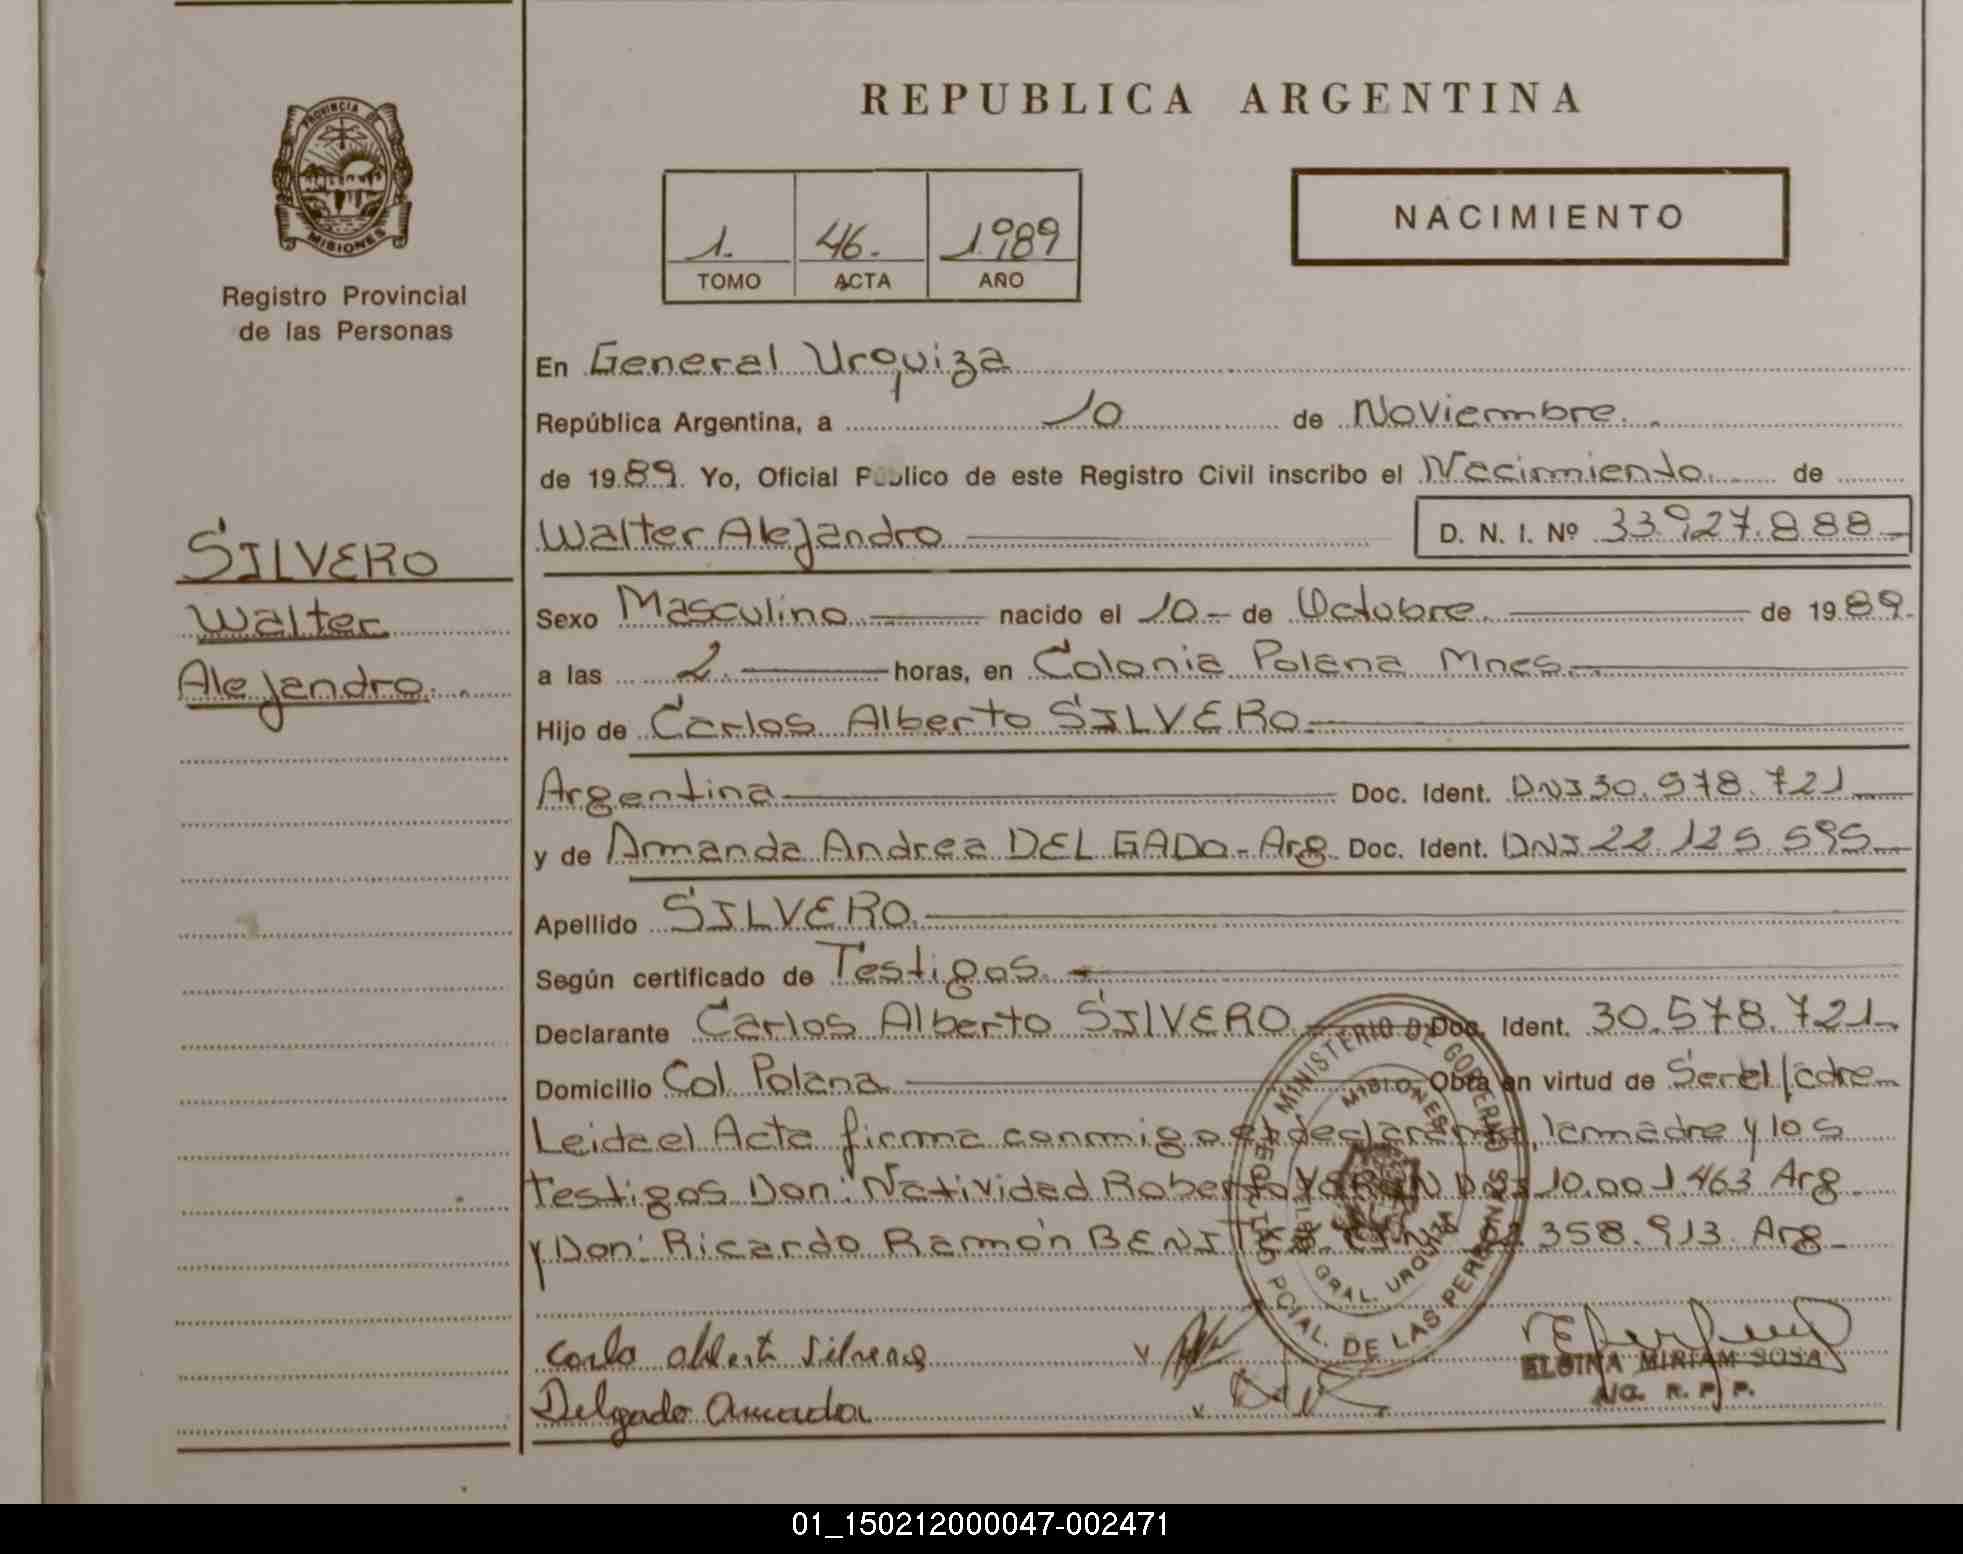 PROVINCIA DE
MISIONES
Registro Provincial
de las Personas
SILVERO
Walter
Alejandro.
REPUBLICA ARGENTINA
1. 46. 1989
TOMO ACTA AÑO
NACIMIENTO
En General Urquiza
República Argentina, a 10 de Noviembre.
de 1989. Yo, Oficial Público de este Registro Civil inscribo el Nacimiento de
Walter Alejandro D. N. I. Nº 33.927.888-
Sexo Masculino nacido el 10- de Octubre. de 1989.
a las 2. horas, en Colonia Polana Mnes.
Hijo de Carlos Alberto SILVERO.
Argentina Doc. Ident. DNI 30.578.721
y de Amanda Andrea DELGADO-Arg. Doc. Ident. DNI 22.125.595
Apellido SILVERO.
Según certificado de Testigos.
Declarante Carlos Alberto SILVERO Doc. Ident. 30.578.721.
Domicilio Col. Polana Obra en virtud de Ser el Padre
Leida el Acta firma conmigo el declarante, la madre y los
Testigos Don: Natividad Roberto DNI 10.001.463 Arg.
y Don: Ricardo Ramón BENITEZ 358.913. Arg
MINISTERIO DE GOBIERNO
MISIONES
GRAL. URQUIZA
REGISTRO PCIAL. DE LAS PERSONAS
Delgado Amanda
ELGINA MIRIAM SOSA
R. P. P.
01_150212000047-002471